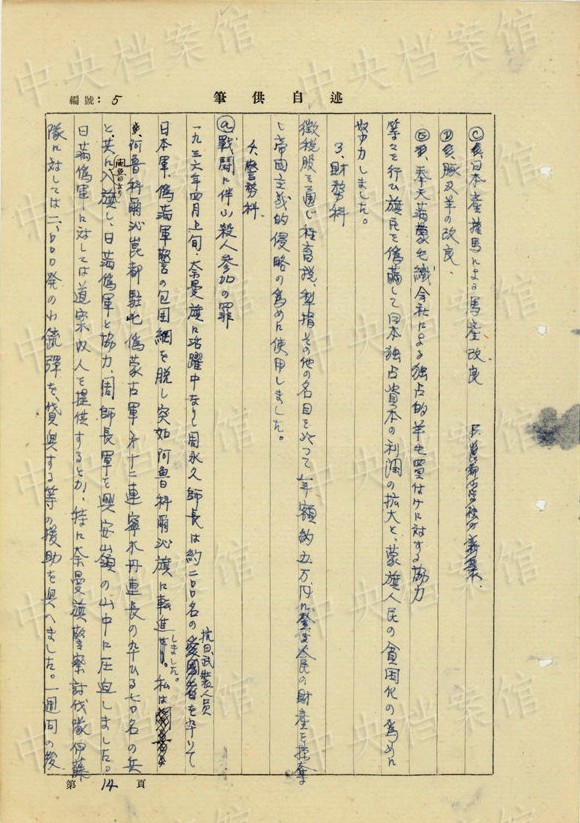 述自供筆
編號：5
ⓒ日本産種馬による馬産改良
ⓓ豚及羊の改良、
ⓔ奉天満蒙毛織会社による独占的羊毛買付けに対する協力
等々を行ひ旗民を偽満して日本独占資本の利潤の拡大と、蒙旗人民の貧困化の為めに
努力しました。
3、財務科
徴税股を通じ牲畜税、其他の名目を以って年額約五万円に人民の財産を掠奪
し帝国主義的侵略の為めに使用しました。
4、警務科
ⓐ戦闘に伴ふ殺人参加の罪
一九三六年四月上旬、奈曼旗に活躍中なりし周永久師長は約二〇〇名の抗日武装人員を率ひて
日本軍、偽満軍警の包囲網を脱し突如阿魯科爾沁旗に転進しました。私は
阿魯科爾沁昆都駐屯偽蒙古軍第十三連寧木丹連長の率ひる七〇名の兵
と、共に入旗し、日満偽軍と協力、周師長軍を興安嶺の山中に圧迫しました。
日満偽軍に対しては道案内人を提供するとか、特に奈曼旗警察討伐隊伊藤
隊に対しては二、〇〇〇発の小銃弾を貸与する等の援助を与へました。一週間の後
第14頁
中央档案馆